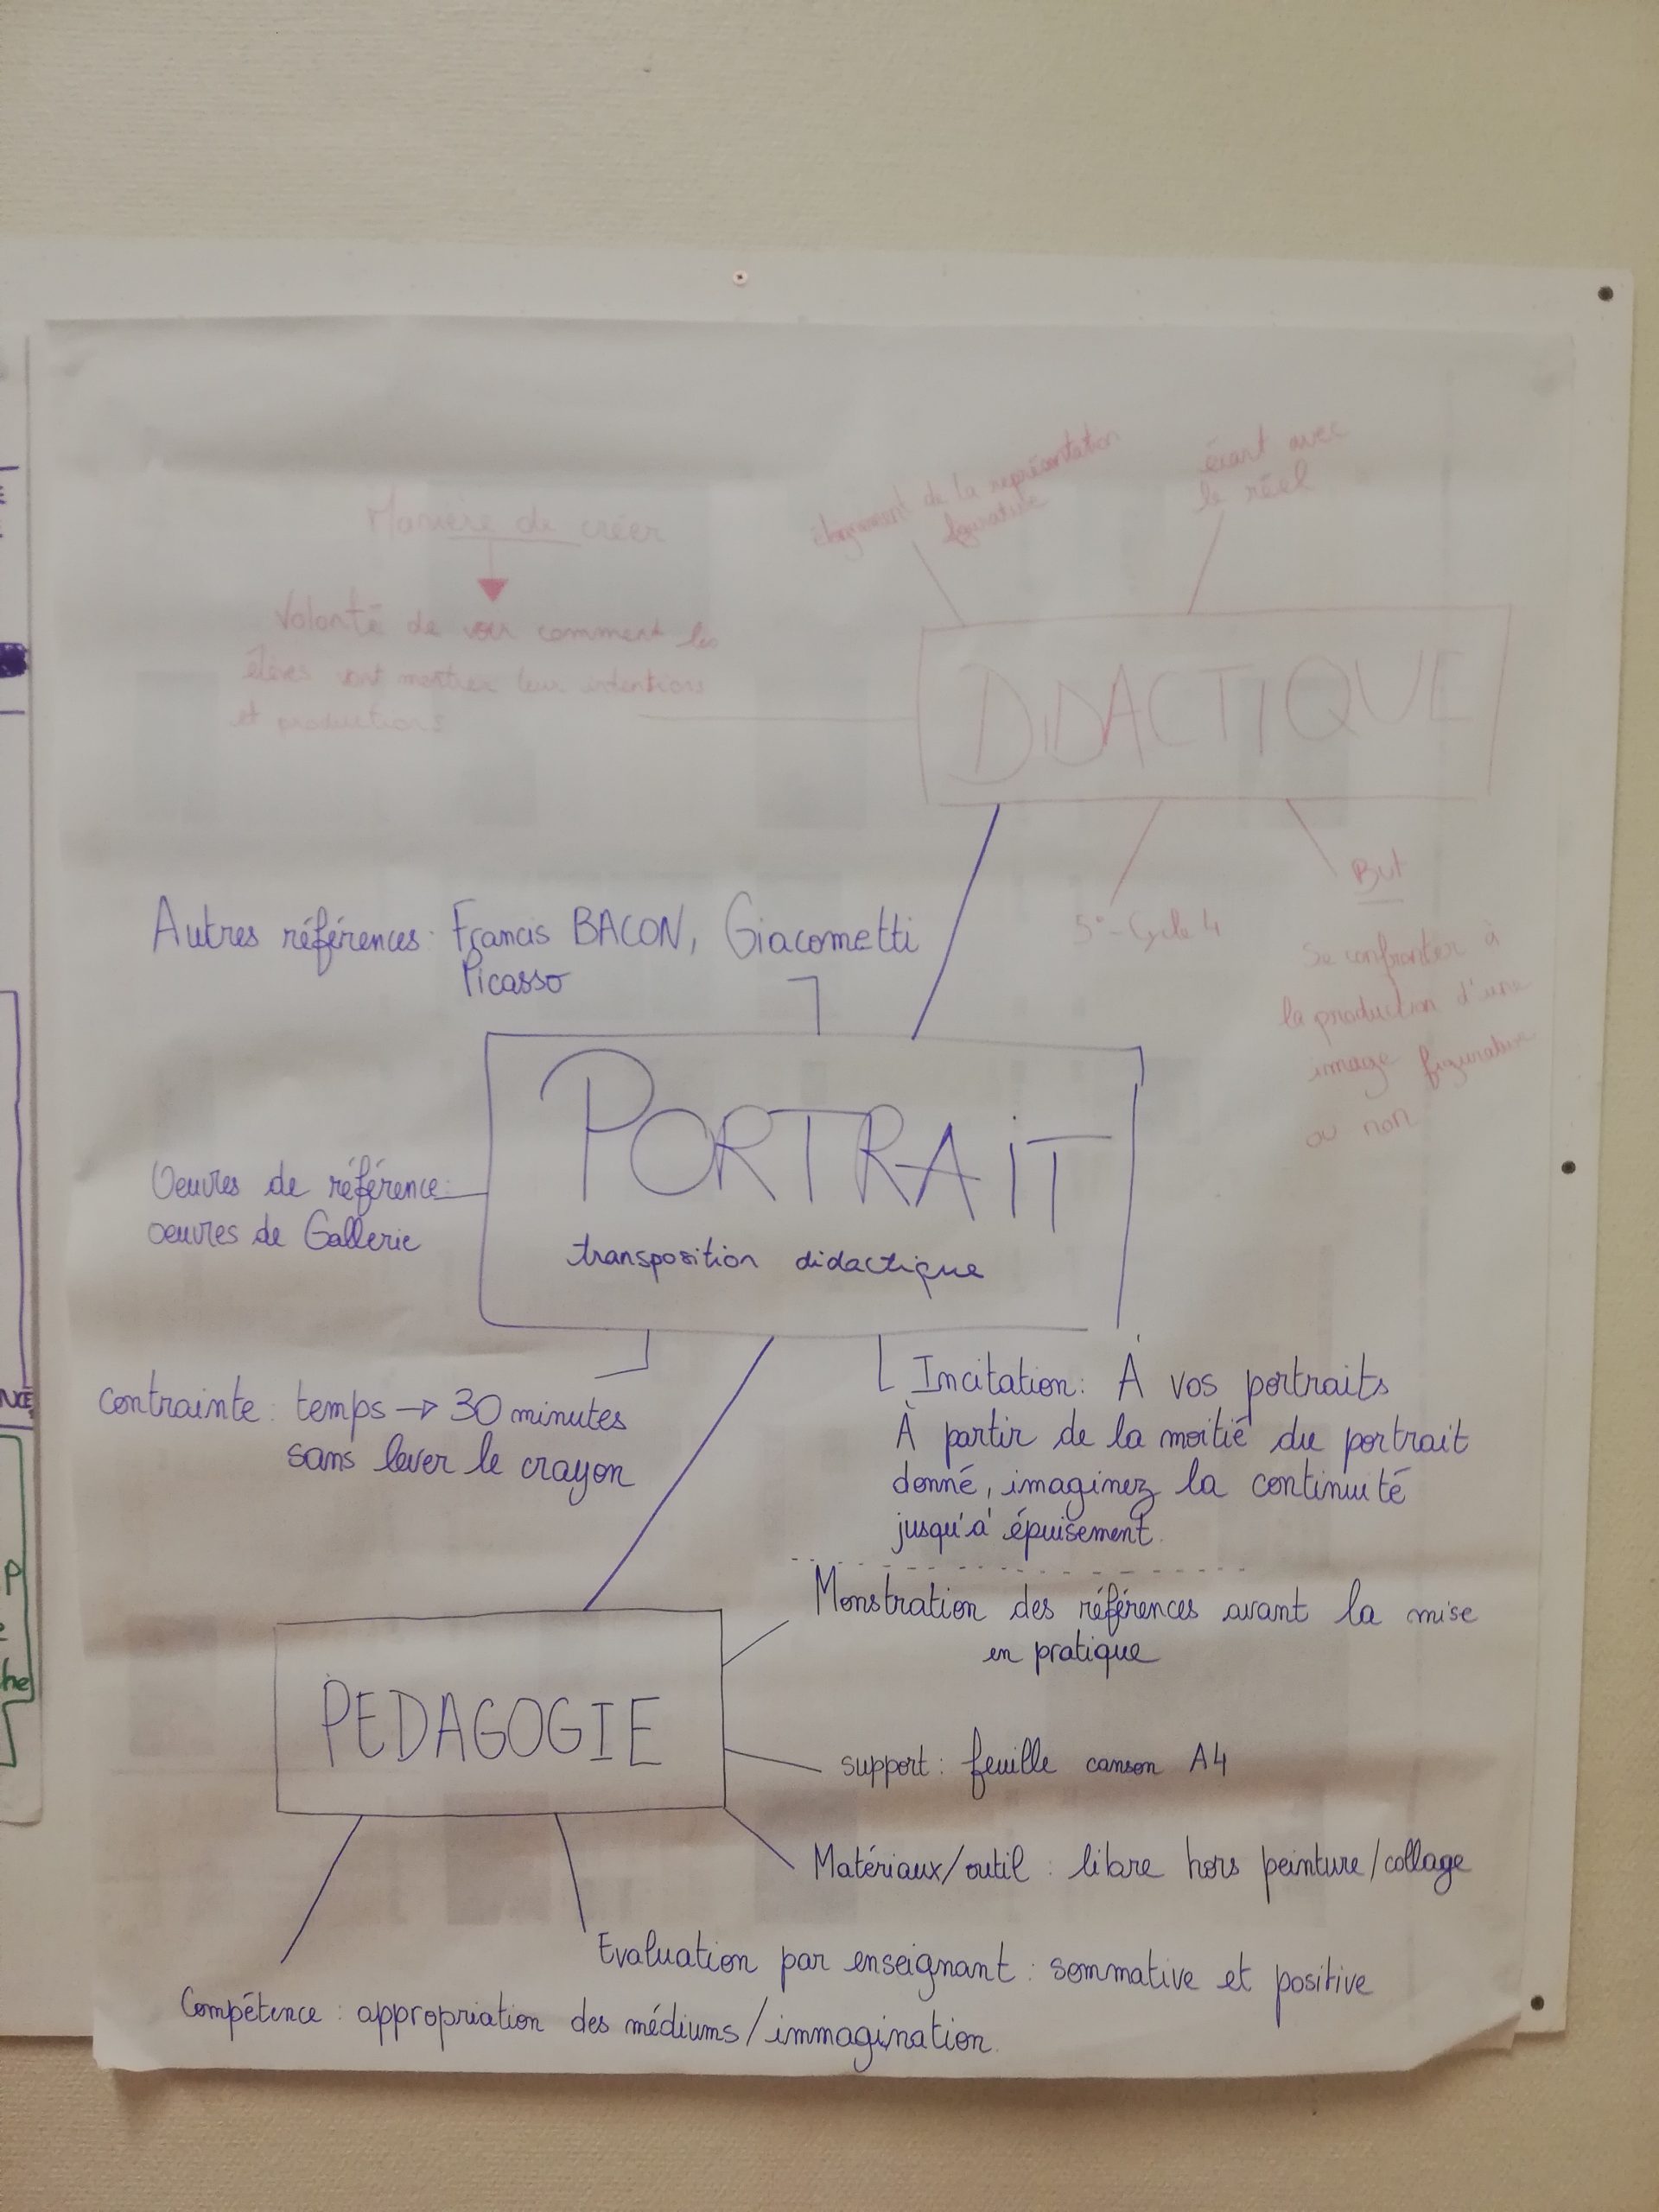 Manière de créer
Volonté de voir comment les
élèves vont montrer leur intentions
et productions
éloignement de la représentation
figurative
écart avec
le réel
DIDACTIQUE
5° - Cycle 4
But
Se confronter à
la production d'une
image figurative
ou non
Autres références: Francis BACON, Giacometti
Picasso
PORTRAIT
transposition didactique
Oeuvres de référence:
oeuvres de Gallerie
contrainte: temps → 30 minutes
sans lever le crayon
Incitation: À vos portraits
À partir de la moitié du portrait
donné, imaginez la continuité
jusqu'à épuisement.
Monstration des références avant la mise
en pratique
PEDAGOGIE
support: feuille canson A4
Matériaux/outil : libre hors peinture/collage
Evaluation par enseignant : sommative et positive
Compétence : appropriation des médiums/immagination.
NCE
P
he